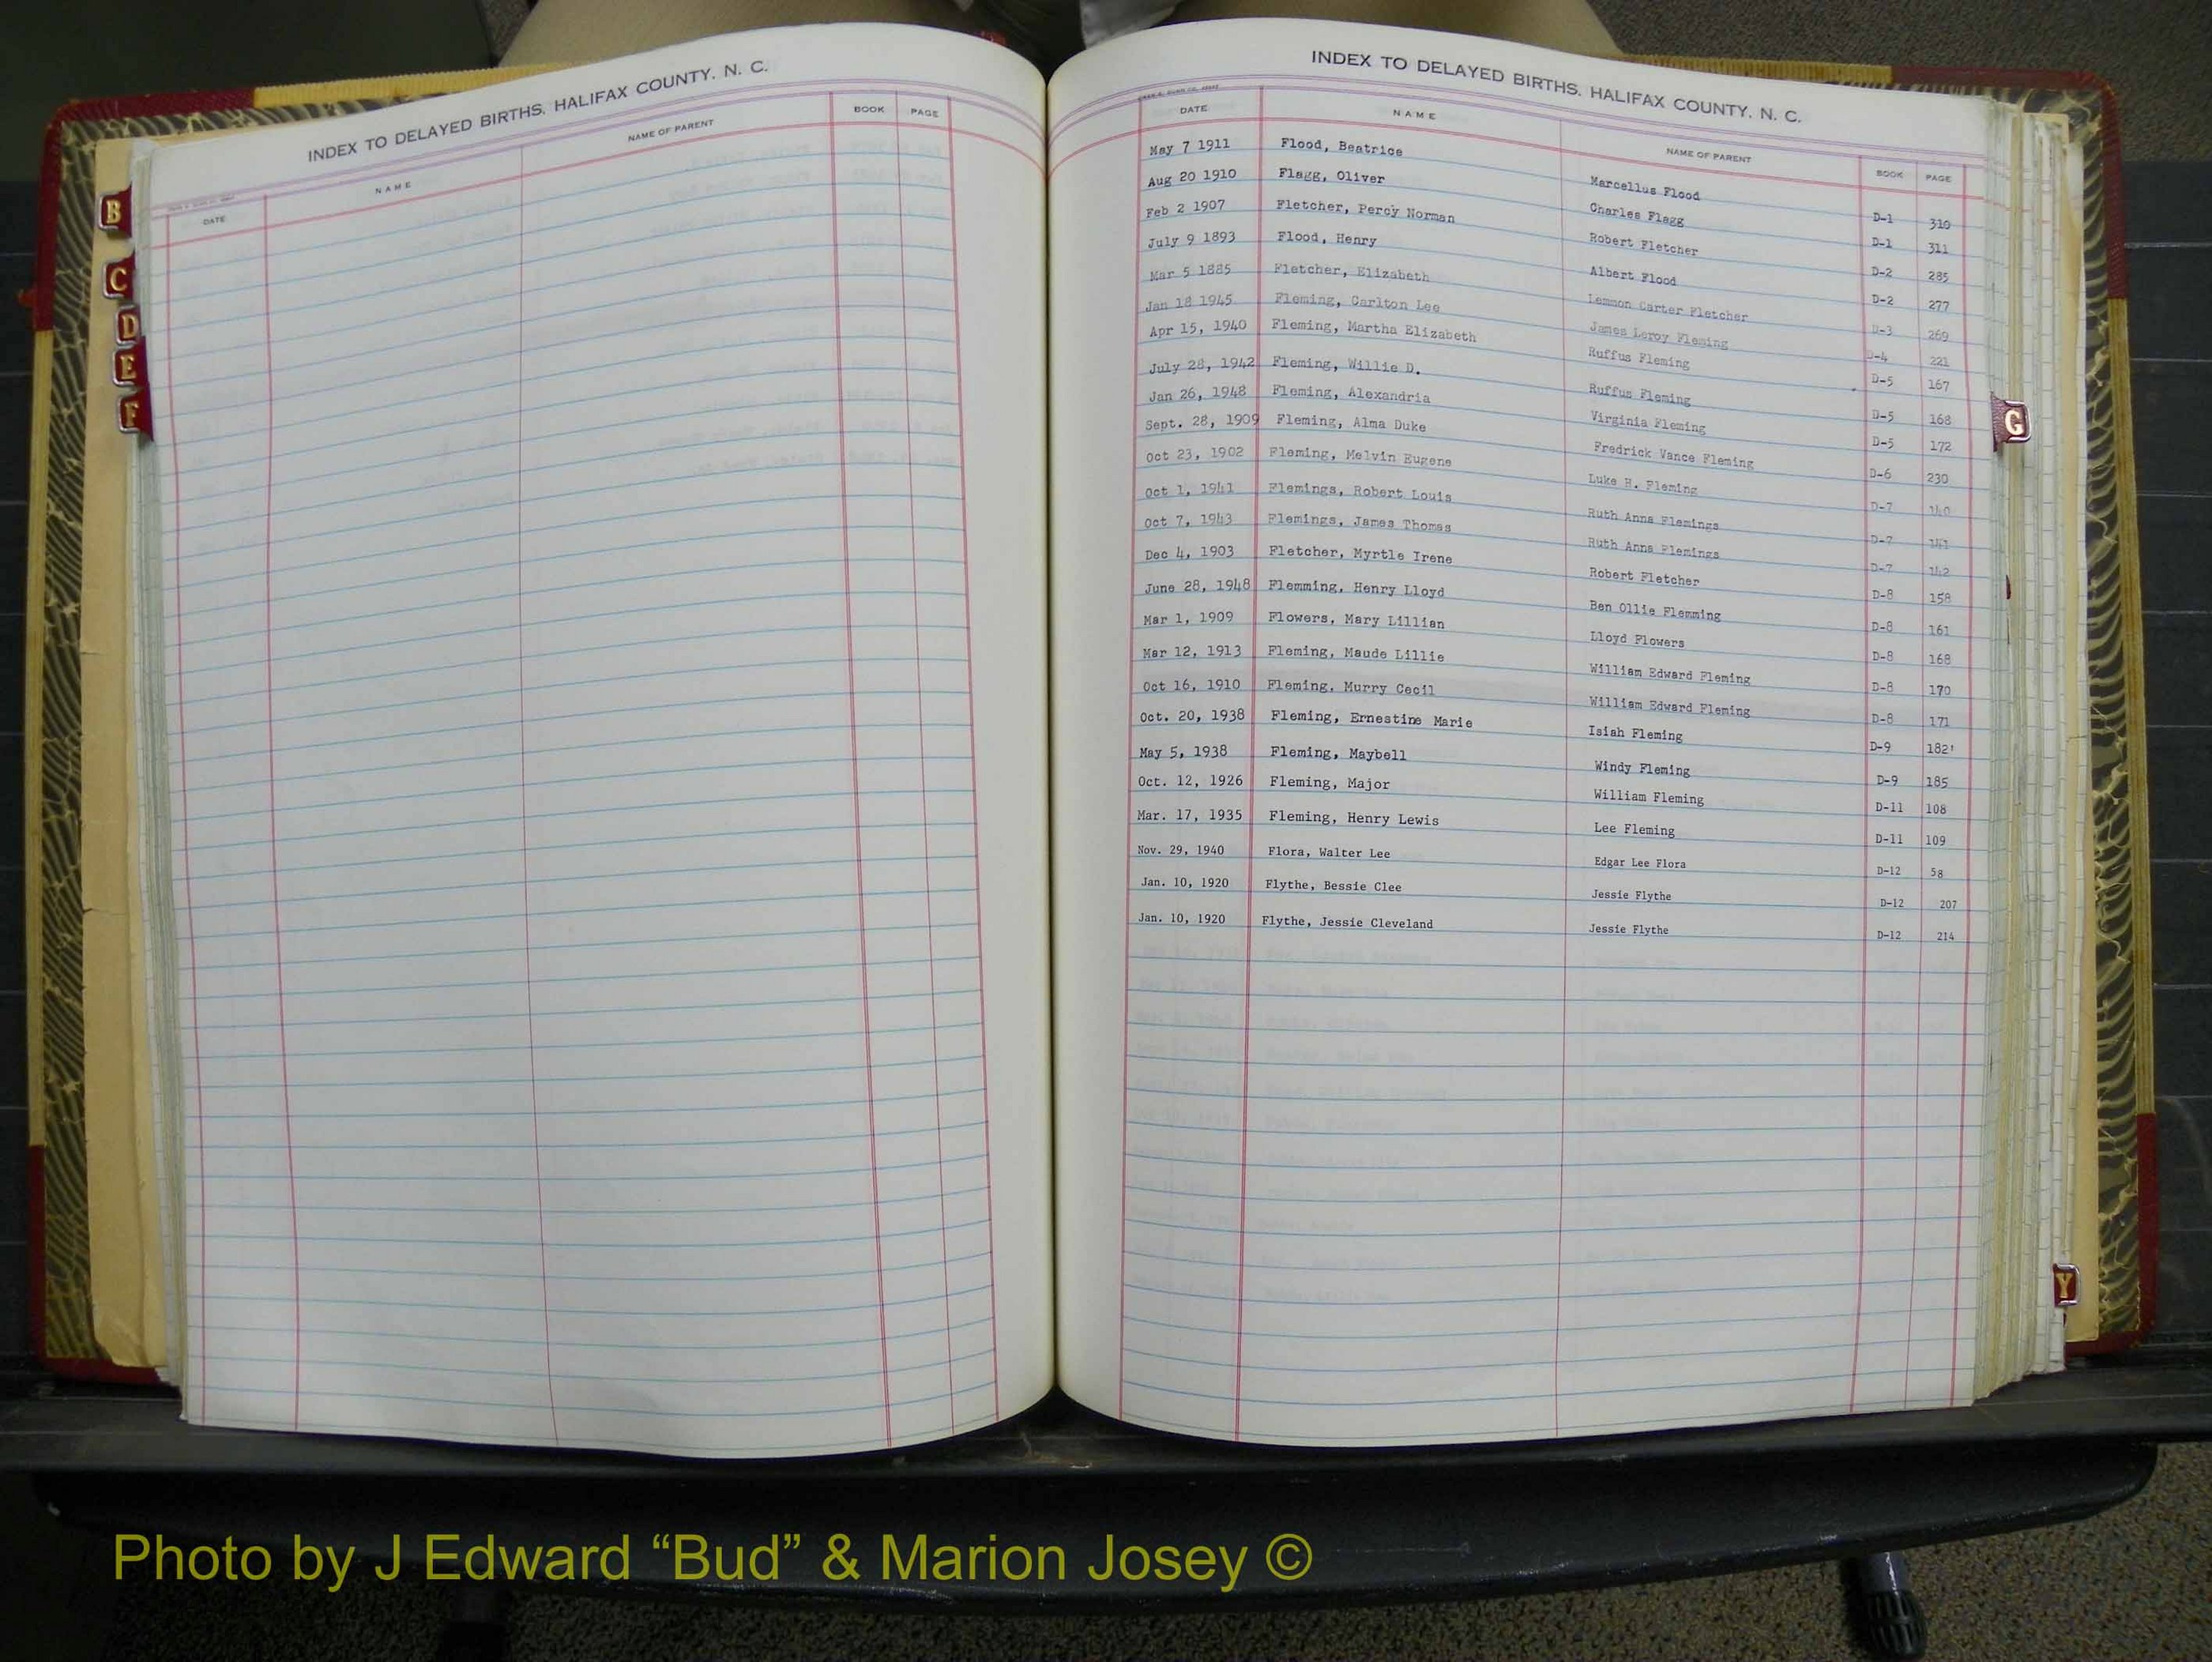 INDEX TO DELAYED BIRTHS, HALIFAX COUNTY, N. C.
DATE NAME NAME OF PARENT BOOK PAGE
B
C
D
E
F
INDEX TO DELAYED BIRTHS, HALIFAX COUNTY, N. C.
DATE NAME NAME OF PARENT BOOK PAGE
May 7 1911 Flood, Beatrice Marcellus Flood D-1 310
Aug 20 1910 Flagg, Oliver Charles Flagg D-1 311
Feb 2 1907 Fletcher, Percy Norman Robert Fletcher D-2 285
July 9 1893 Flood, Henry Albert Flood D-2 277
Mar 5 1885 Fletcher, Elizabeth Lemmon Carter Fletcher D-3 269
Jan 18 1945 Fleming, Carlton Lee James Leroy Fleming D-4 221
Apr 15, 1940 Fleming, Martha Elizabeth Ruffus Fleming D-5 167
July 28, 1942 Fleming, Willie D. Ruffus Fleming D-5 168
Jan 26, 1948 Fleming, Alexandria Virginia Fleming D-5 172
Sept. 28, 1909 Fleming, Alma Duke Fredrick Vance Fleming D-6 230
Oct 23, 1902 Fleming, Melvin Eugene Luke H. Fleming D-7 140
Oct 1, 1941 Flemings, Robert Louis Ruth Anna Flemings D-7 141
Oct 7, 1943 Flemings, James Thomas Ruth Anna Flemings D-7 142
Dec 4, 1903 Fletcher, Myrtle Irene Robert Fletcher D-8 158
June 28, 1948 Flemming, Henry Lloyd Ben Ollie Flemming D-8 161
Mar 1, 1909 Flowers, Mary Lillian Lloyd Flowers D-8 168
Mar 12, 1913 Fleming, Maude Lillie William Edward Fleming D-8 170
Oct 16, 1910 Fleming, Murry Cecil William Edward Fleming D-8 171
Oct. 20, 1938 Fleming, Ernestine Marie Isiah Fleming D-9 182'
May 5, 1938 Fleming, Maybell Windy Fleming D-9 185
Oct. 12, 1926 Fleming, Major William Fleming D-11 108
Mar. 17, 1935 Fleming, Henry Lewis Lee Fleming D-11 109
Nov. 29, 1940 Flora, Walter Lee Edgar Lee Flora D-12 58
Jan. 10, 1920 Flythe, Bessie Clee Jessie Flythe D-12 207
Jan. 10, 1920 Flythe, Jessie Cleveland Jessie Flythe D-12 214
G
Y
Photo by J Edward “Bud” & Marion Josey ©